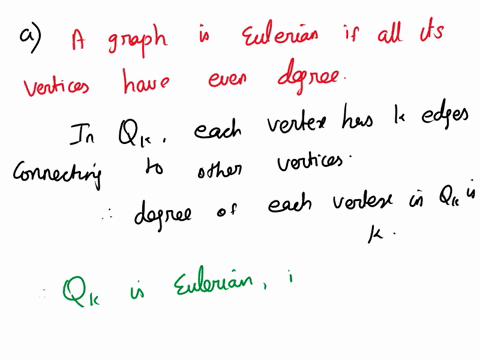 a) A graph is Eulerian if all its
vertices have even degree.
In Qk, each vertex has k edges
connecting to other vertices.
∴ degree of each vertex in Qk is
k.
∴ Qk is Eulerian, i